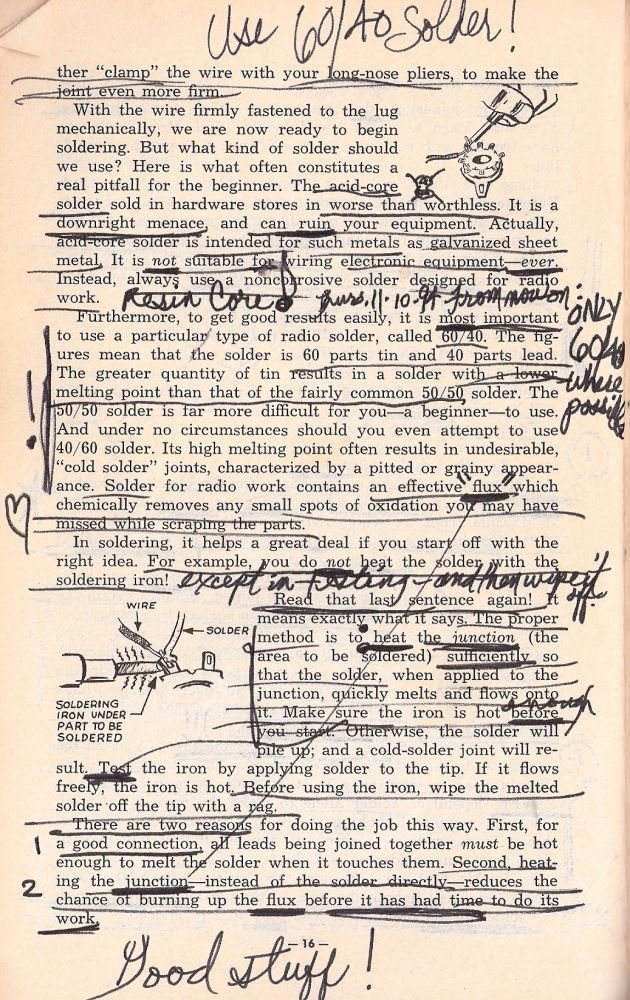 Use 60/40 Solder!
ther “clamp” the wire with your long-nose pliers, to make the
joint even more firm.
With the wire firmly fastened to the lug
mechanically, we are now ready to begin
soldering. But what kind of solder should
we use? Here is what often constitutes a
real pitfall for the beginner. The acid-core
solder sold in hardware stores in worse than worthless. It is a
downright menace, and can ruin your equipment. Actually,
acid-core solder is intended for such metals as galvanized sheet
metal. It is not suitable for wiring electronic equipment—ever.
Instead, always use a noncorrosive solder designed for radio
work.
Resin Core! 11·10·94 from now on:
ONLY
60/40
where
possible
Furthermore, to get good results easily, it is most important
to use a particular type of radio solder, called 60/40. The fig-
ures mean that the solder is 60 parts tin and 40 parts lead.
The greater quantity of tin results in a solder with a lower
melting point than that of the fairly common 50/50 solder. The
50/50 solder is far more difficult for you—a beginner—to use.
And under no circumstances should you even attempt to use
40/60 solder. Its high melting point often results in undesirable,
“cold solder” joints, characterized by a pitted or grainy appear-
ance. Solder for radio work contains an effective "flux" which
chemically removes any small spots of oxidation you may have
missed while scraping the parts.
In soldering, it helps a great deal if you start off with the
right idea. For example, you do not heat the solder with the
soldering iron! except in testing – and then wipe it
off.
WIRE
SOLDER
SOLDERING
IRON UNDER
PART TO BE
SOLDERED
Read that last sentence again! It
means exactly what it says. The proper
method is to heat the junction (the
area to be soldered) sufficiently so
that the solder, when applied to the
junction, quickly melts and flows onto
it. Make sure the iron is hot enough before
you start. Otherwise, the solder will
pile up; and a cold-solder joint will re-
sult. Test the iron by applying solder to the tip. If it flows
freely, the iron is hot. Before using the iron, wipe the melted
solder off the tip with a rag.
There are two reasons for doing the job this way. First, for
1 a good connection, all leads being joined together must be hot
enough to melt the solder when it touches them. Second, heat-
2 ing the junction—instead of the solder directly—reduces the
chance of burning up the flux before it has had time to do its
work.
– 16 –
Good stuff!